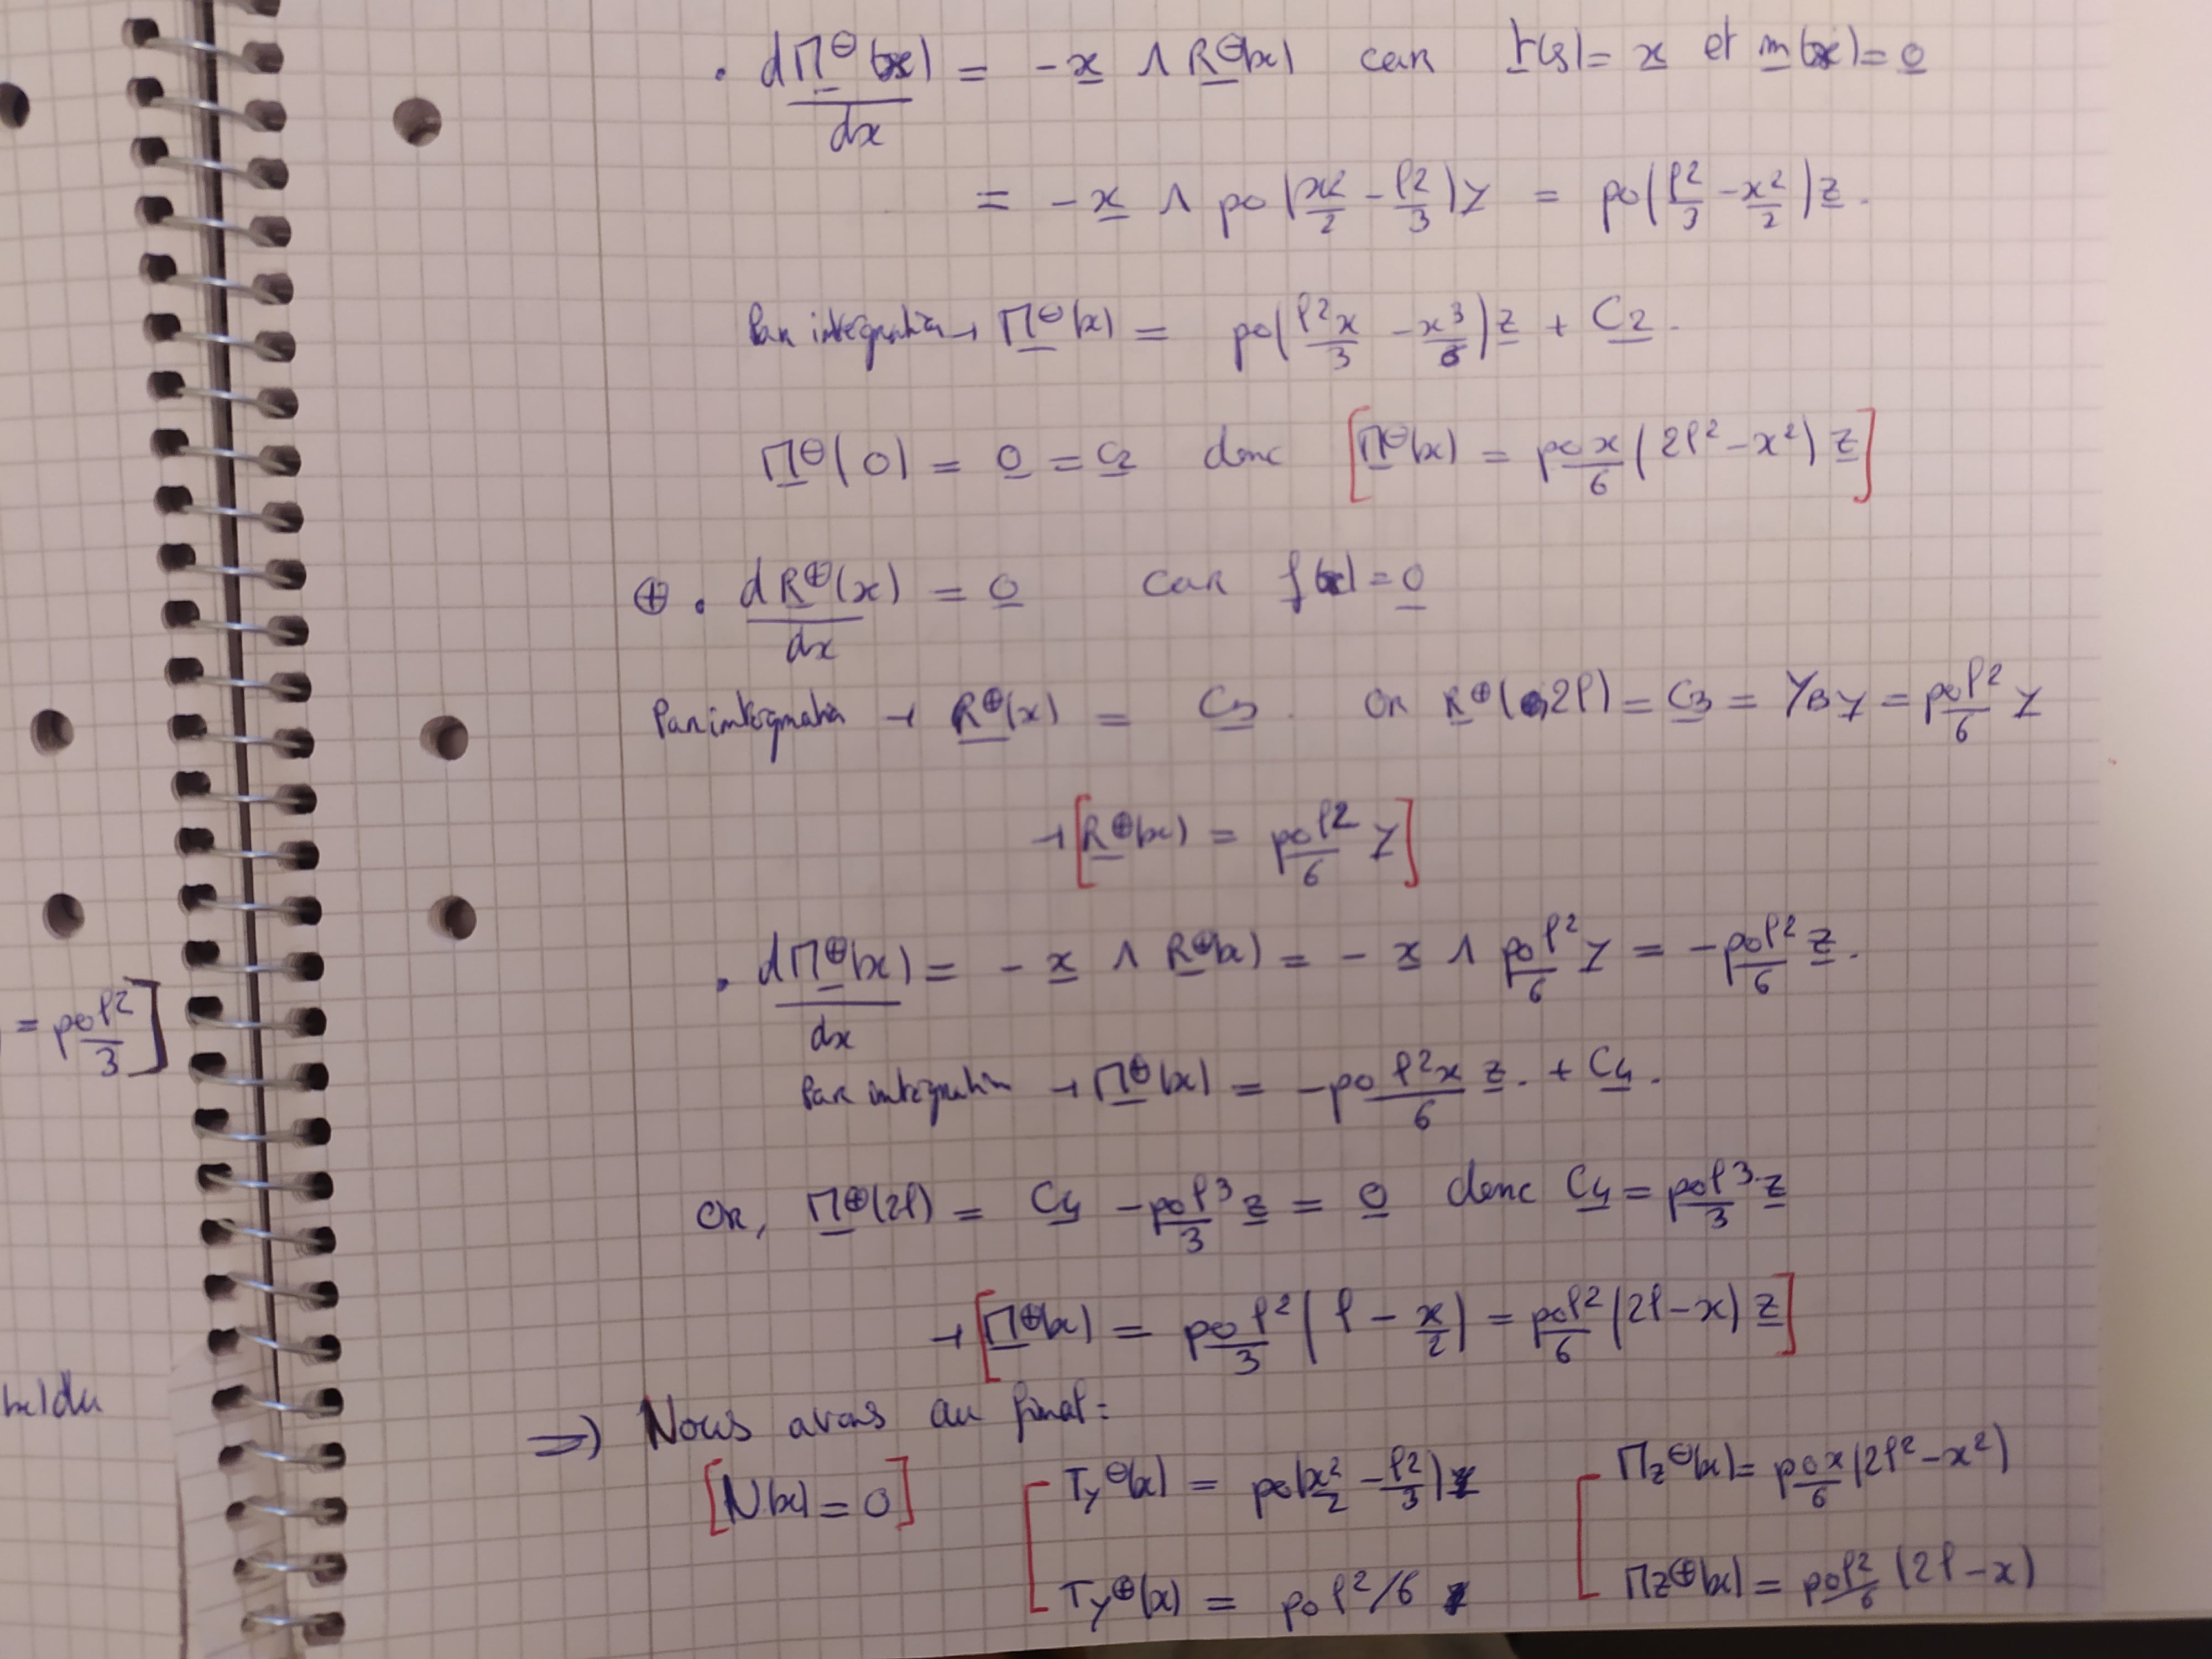 . dM⊖(x)/dx = - x ∧ R⊖(x) car t(s) = x et m(x) = 0
= - x ∧ po(x²/2 - l²/3) y = po(l²/3 - x²/2) z.
Par intégration → M⊖(x) = po(l²x/3 - x³/6) z + C2.
M⊖(0) = 0 = C2 donc [M⊖(x) = po x/6 (2l² - x²) z]
⊕ . dR⊕(x)/dx = 0 car f(x) = 0
Par intégration → R⊕(x) = C3. Or R⊕(2l) = C3 = YB y = pol²/6 y
→ [R⊕(x) = pol²/6 y]
. dM⊕(x)/dx = - x ∧ R⊕(x) = - x ∧ pol²/6 y = - pol²/6 z.
= pol²/3]
Par intégration → M⊕(x) = - po l²x/6 z. + C4.
Or, M⊕(2l) = C4 - pol³/3 z = 0 donc C4 = pol³/3 z
→ [M⊕(x) = pol²/3 (l - x/2) = pol²/6 (2l - x) z]
⇒ Nous avons au final :
[N(x) = 0] [Ty⊖(x) = po(x²/2 - l²/3) [Mz⊖(x) = po x/6 (2l² - x²)
Ty⊕(x) = pol²/6 Mz⊕(x) = pol²/6 (2l - x)